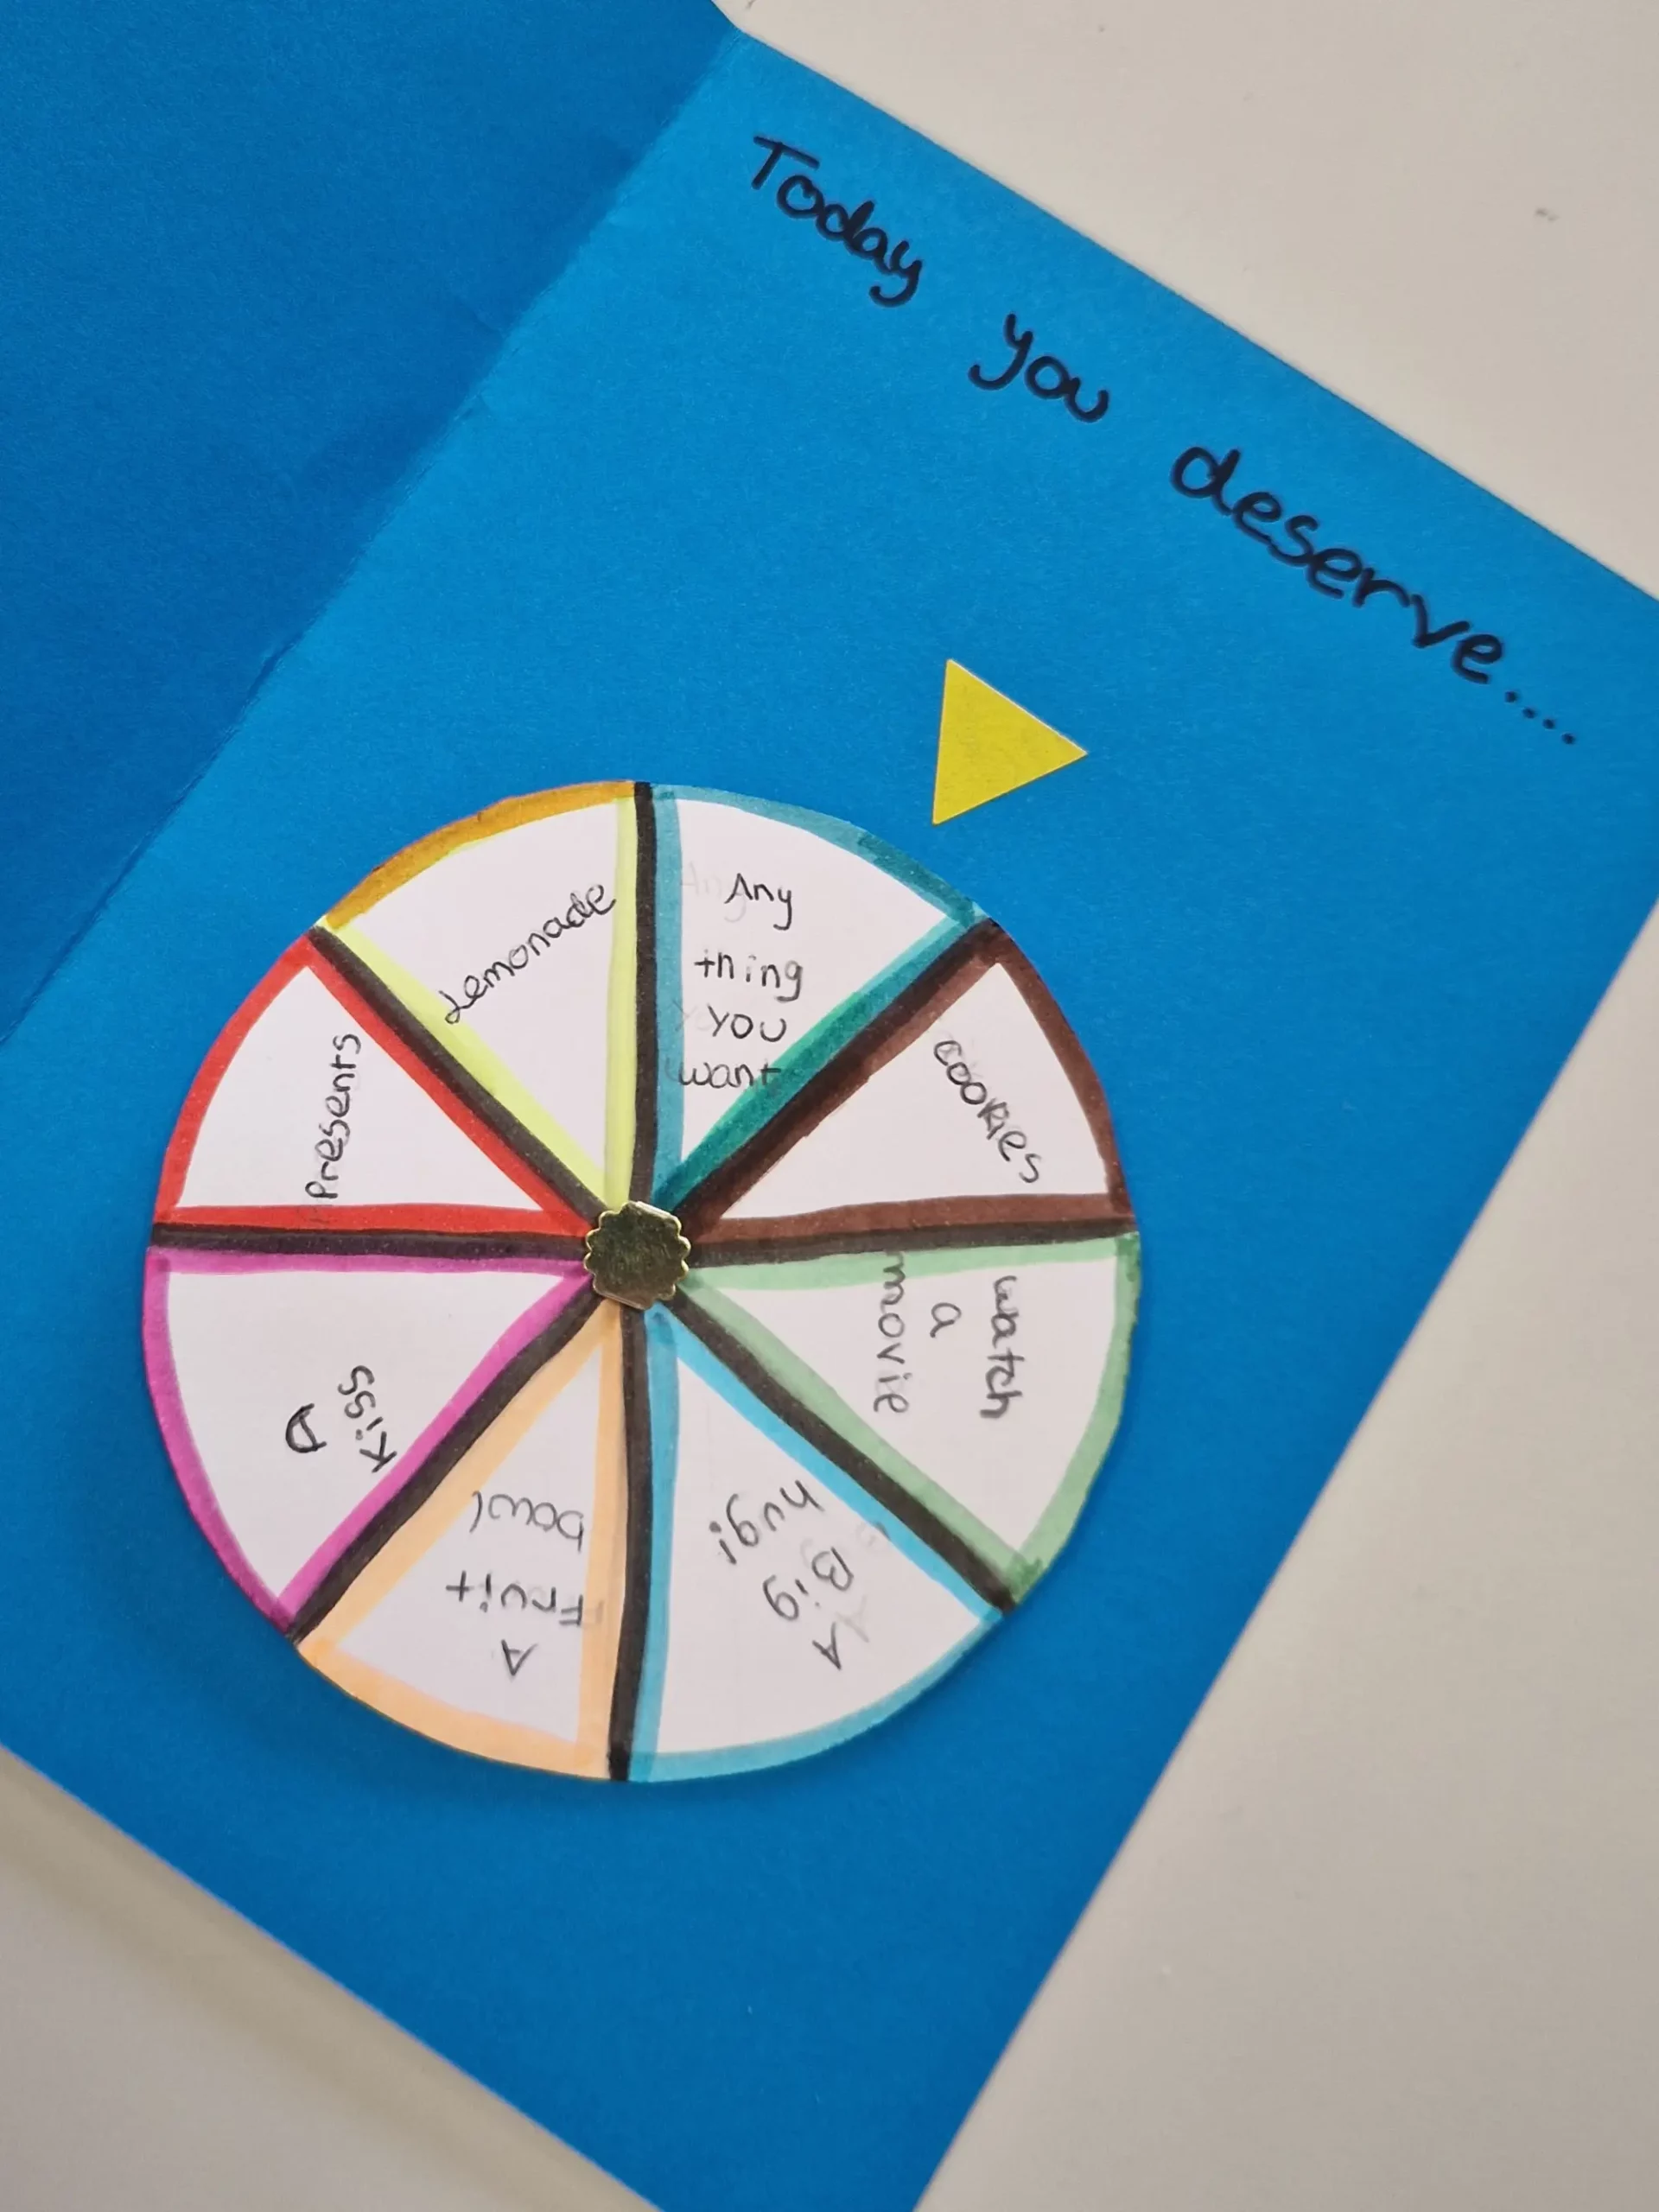 Today you deserve....
Any
thing
you
want
cookies
watch
a
movie
A
Big
hug!
A
Fruit
bowl
A
Kiss
Presents
Lemonade